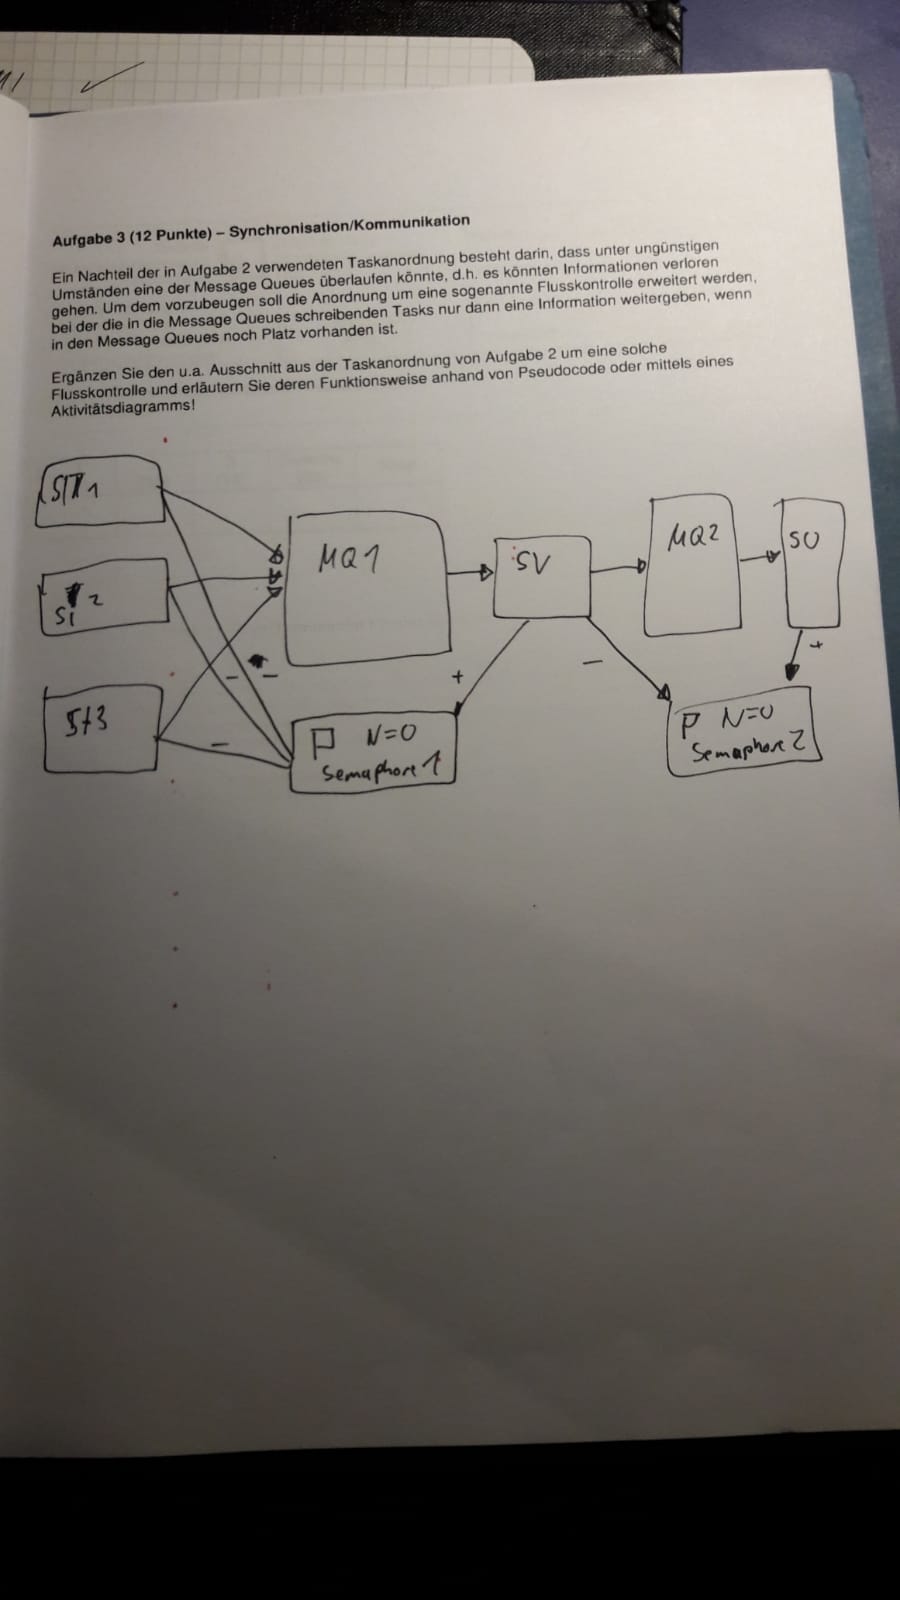 Aufgabe 3 (12 Punkte) – Synchronisation/Kommunikation
Ein Nachteil der in Aufgabe 2 verwendeten Taskanordnung besteht darin, dass unter ungünstigen
Umständen eine der Message Queues überlaufen könnte, d.h. es könnten Informationen verloren
gehen. Um dem vorzubeugen soll die Anordnung um eine sogenannte Flusskontrolle erweitert werden,
bei der die in die Message Queues schreibenden Tasks nur dann eine Information weitergeben, wenn
in den Message Queues noch Platz vorhanden ist.
Ergänzen Sie den u.a. Ausschnitt aus der Taskanordnung von Aufgabe 2 um eine solche
Flusskontrolle und erläutern Sie deren Funktionsweise anhand von Pseudocode oder mittels eines
Aktivitätsdiagramms!
MQ1
SV
MQ2
SO
St3
- - -
+
-
+
P N=0
Semaphore 1
P N=0
Semaphore 2